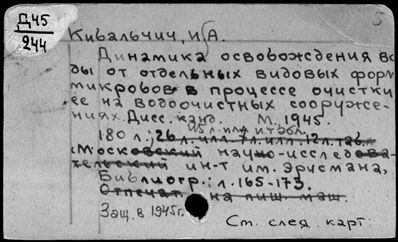 Д45
244
5
Кибальчич, И.А.
Динамика освобождения во
ды от отдельных видовых форм
микробов в процессе очистки
ее на водоочистных сооруже-
ниях. Дисс. канд. М. 1945.
180 л.; 26 л. илл. 7 л. илл. 12 л.
(Московский научно-исследова-
тельский ин-т им. Эрисмана,
Библиогр.: л. 165-173.
Отпечат. на пиш. маш.
Защ. в 1945г.
См. след. карт.